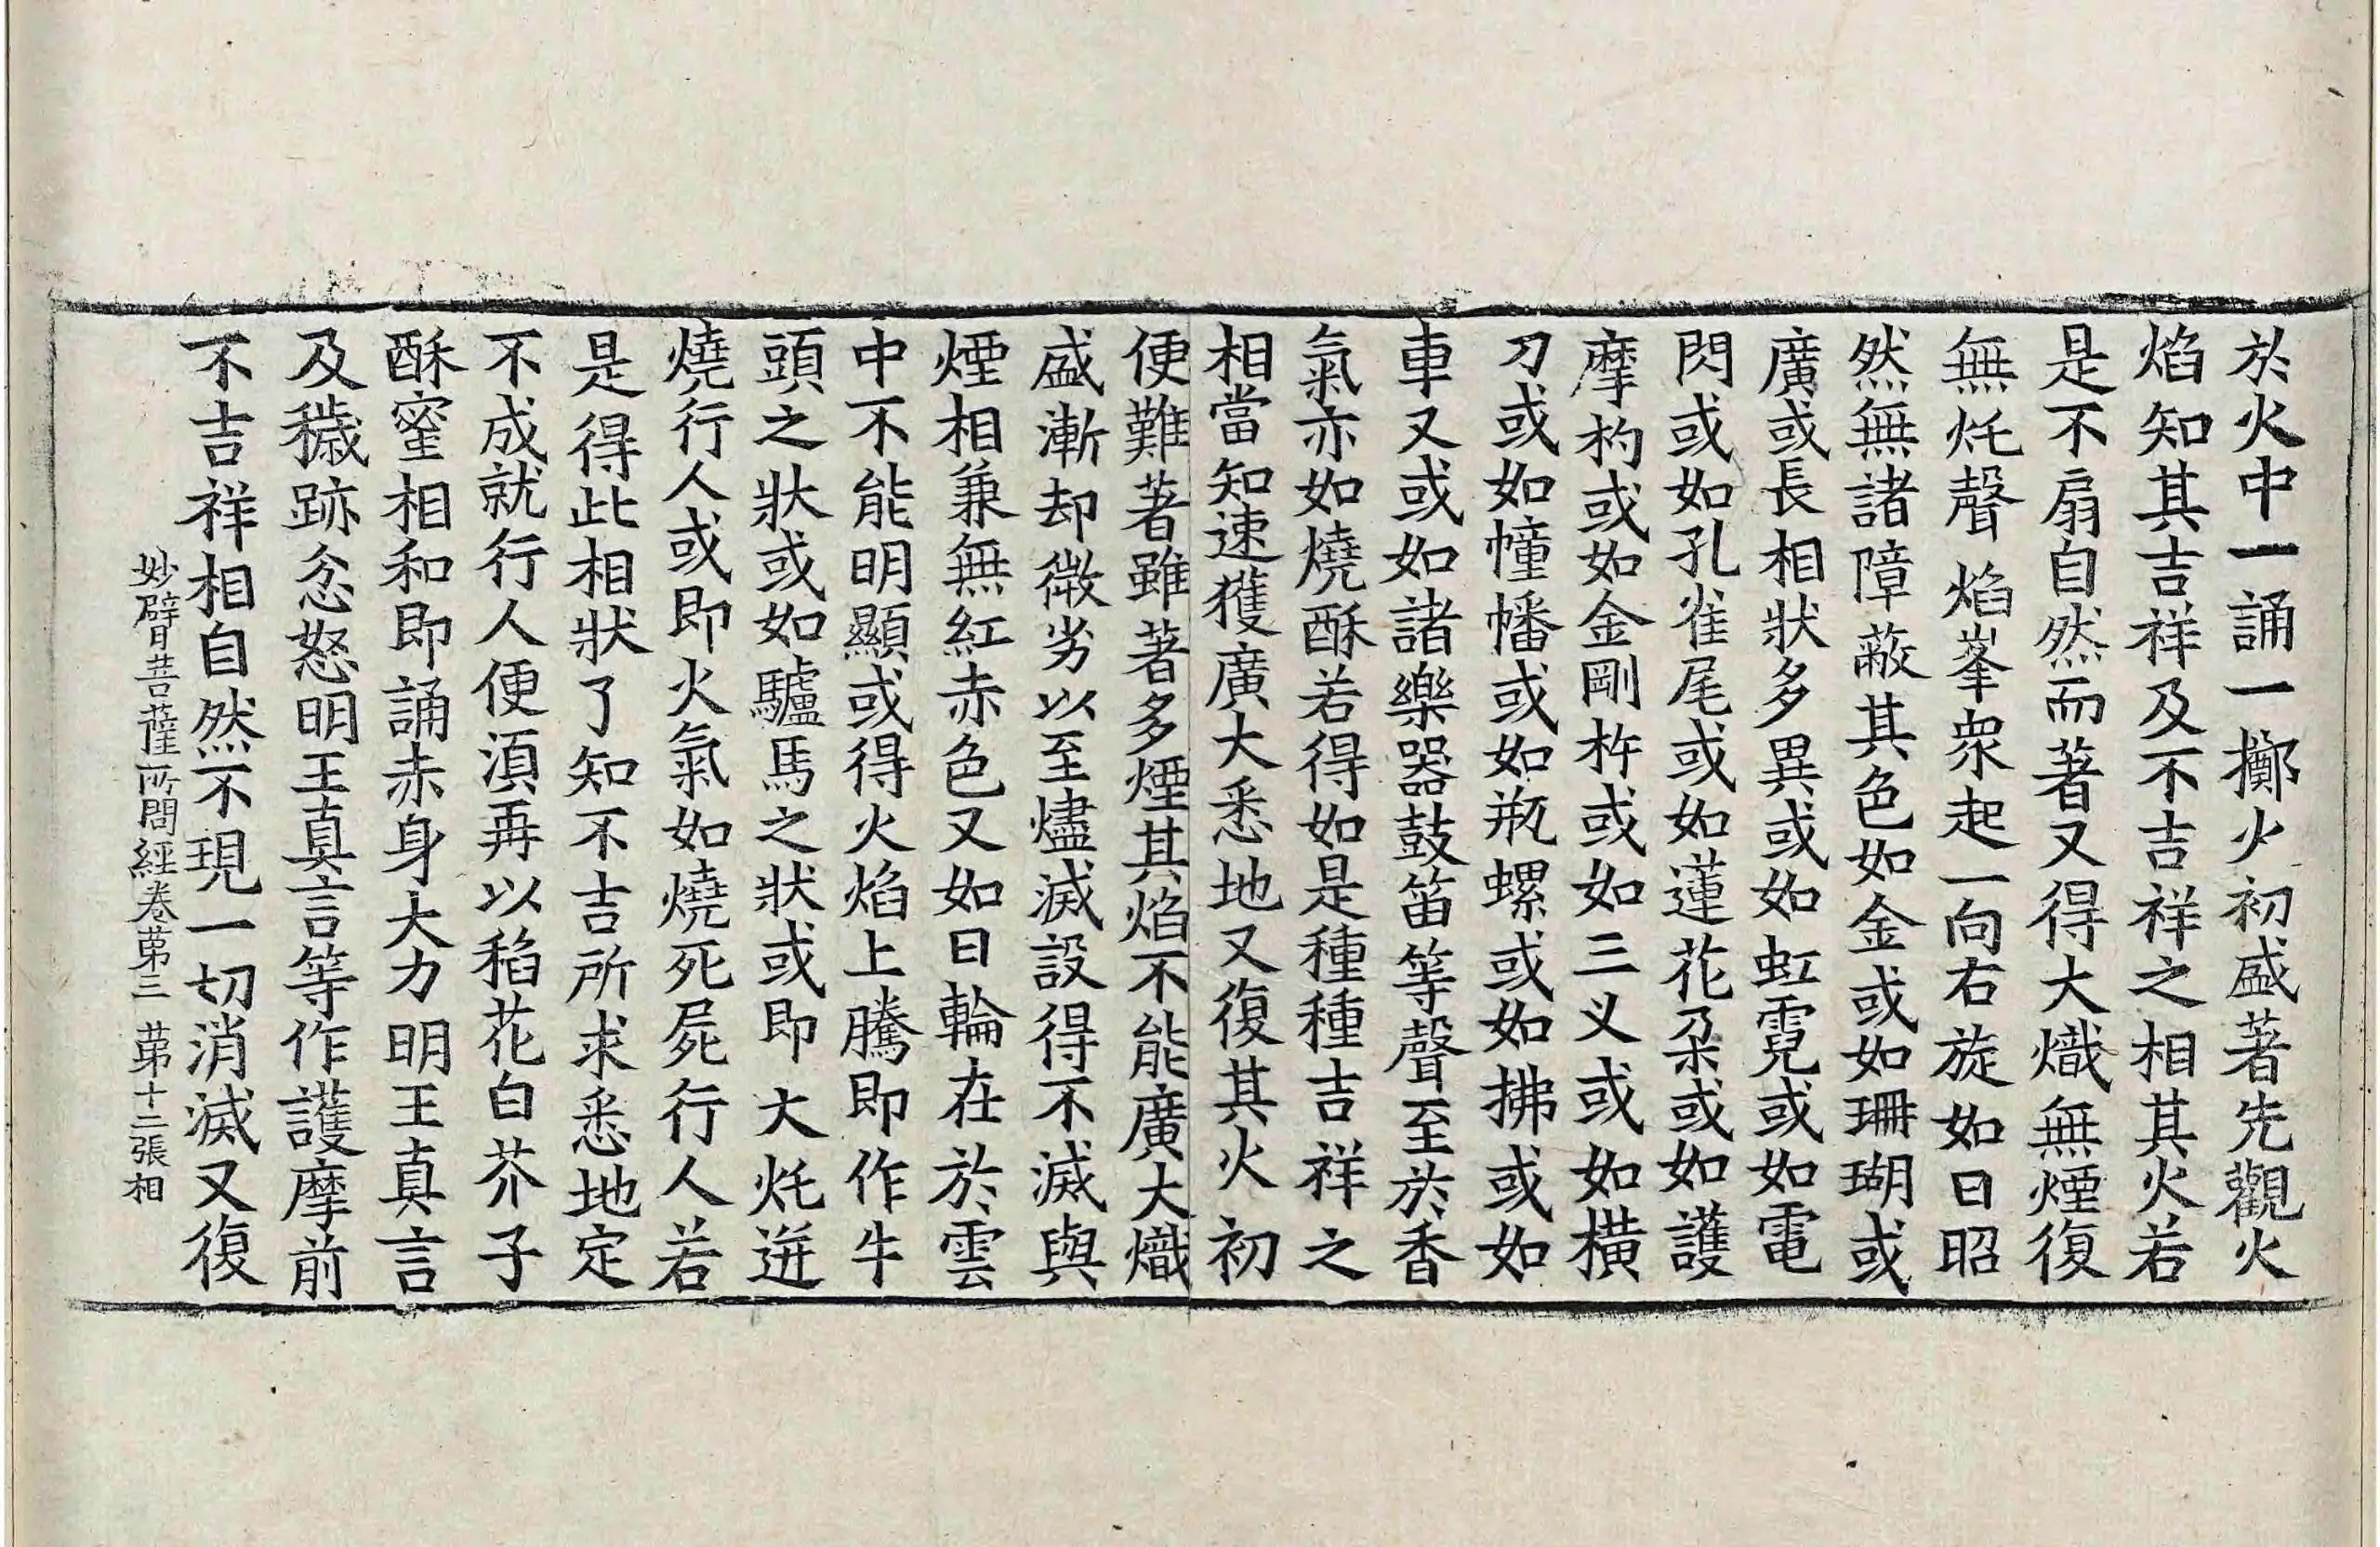 於火中一誦一擲火初盛著先觀火
焰知其吉祥及不吉祥之相其火若
是不扇自然而著又得大熾無煙復
無灹聲焰峯衆起一向右旋如日昭
然無諸障蔽其色如金或如珊瑚或
廣或長相狀多異或如虹霓或如電
閃或如孔雀尾或如蓮花朶或如護
摩杓或如金剛杵或如三义或如橫
刀或如幢幡或如瓶螺或如拂或如
車又或如諸樂器鼓笛等聲至於香
氣亦如燒酥若得如是種種吉祥之
相當知速獲廣大悉地又復其火初
便難著雖著多煙其焰不能廣大熾
盛漸却微劣以至燼滅設得不滅與
煙相兼無紅赤色又如日輪在於雲
中不能明顯或得火焰上騰即作牛
頭之狀或如驢馬之狀或即大灹迸
燒行人或即火氣如燒死屍行人若
是得此相狀了知不吉所求悉地定
不成就行人便湏再以稻花白芥子
酥蜜相和即誦赤身大力明王真言
及穢跡忿怒明王真言等作護摩前
不吉祥相自然不現一切消滅又復
妙臂菩薩所問經卷苐三 苐十二張相